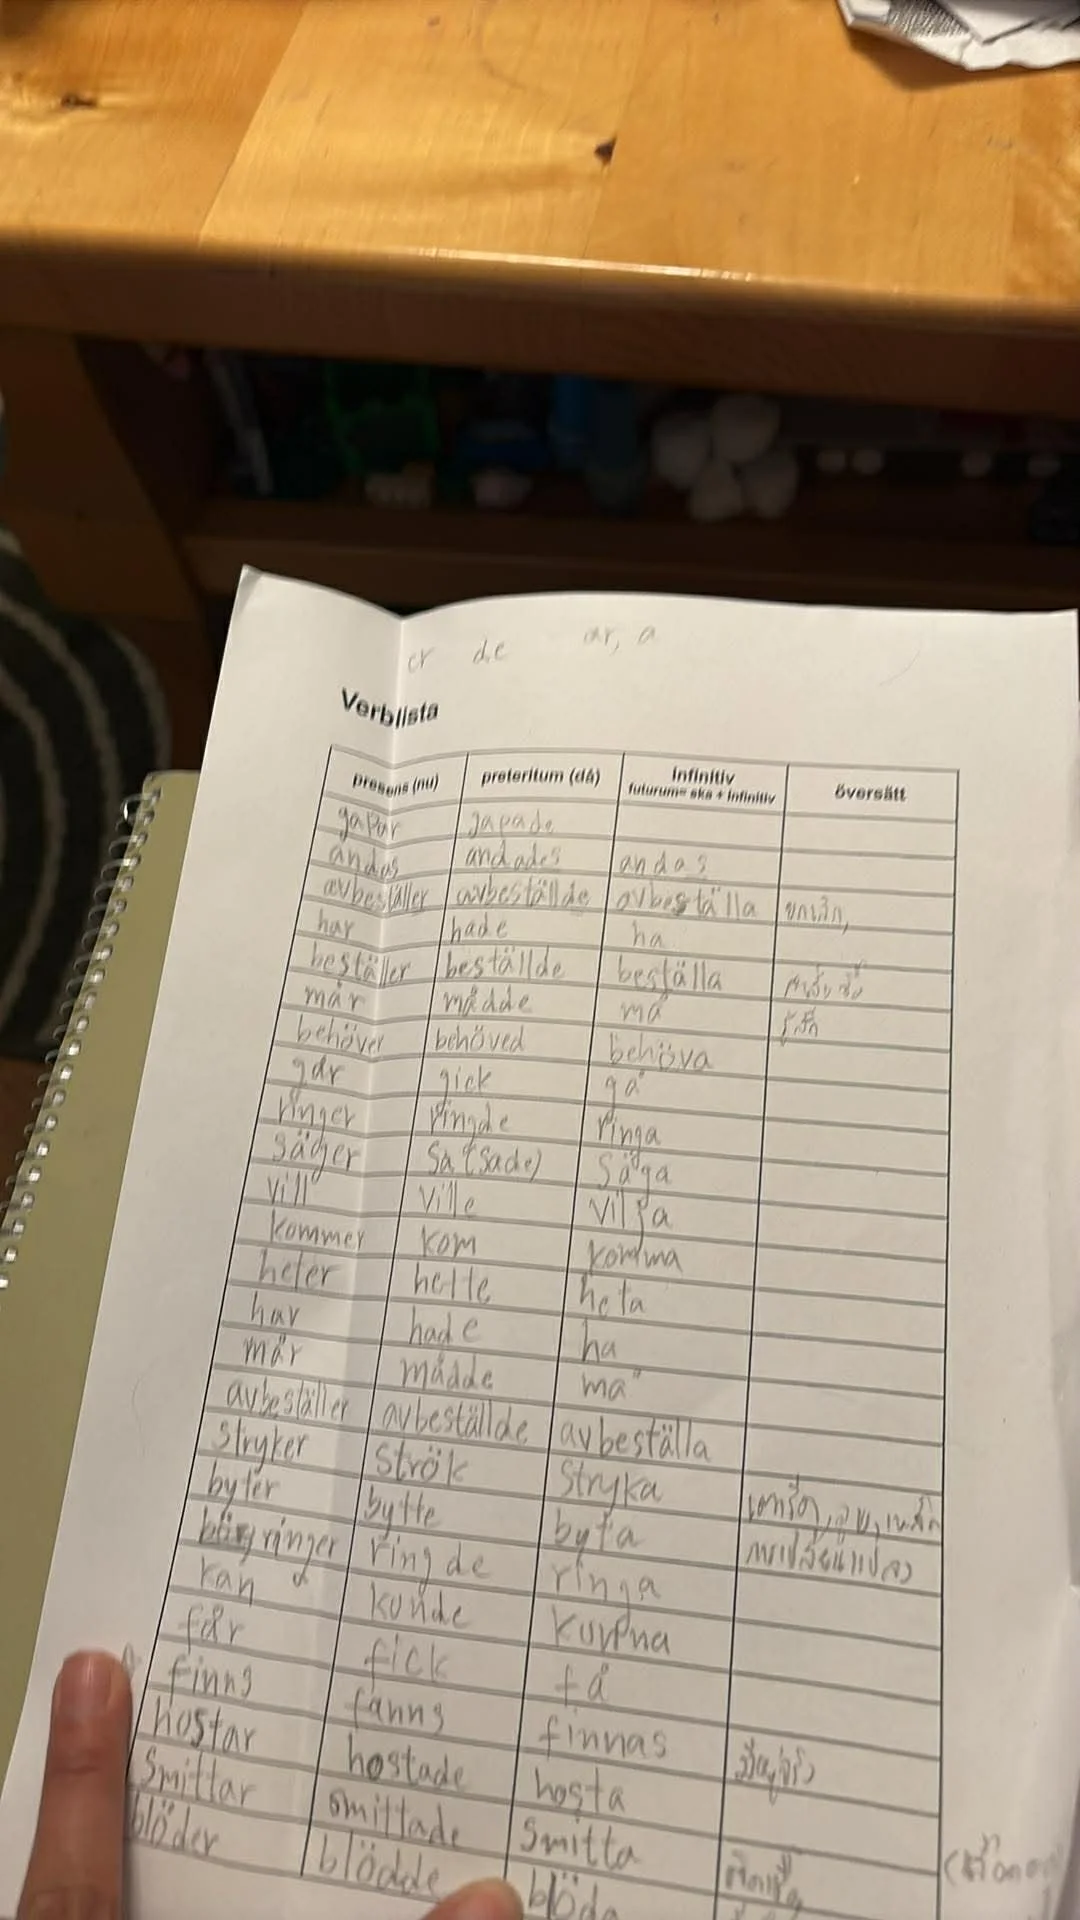 er de ar, a
Verblista
presens (nu) preteritum (då) infinitiv futurum= ska + infinitiv översätt
gapar gapade
andas andades andas
avbeställer avbeställde avbeställa ยกเลิก,
har hade ha
beställer beställde beställa
mår mådde må รู้สึก
behöver behöved behöva
går gick gå
ringer ringde ringa
säger sa (sade) säga
vill ville vilja
kommer kom komma
heter hette heta
har hade ha
mår mådde må
avbeställer avbeställde avbeställa
stryker strök stryka
byter bytte byta
ringer ringde ringa
kan kunde kunna
får fick få
finns fanns finnas
hostar hostade hosta
smittar smittade smitta
blöder blödde blöda